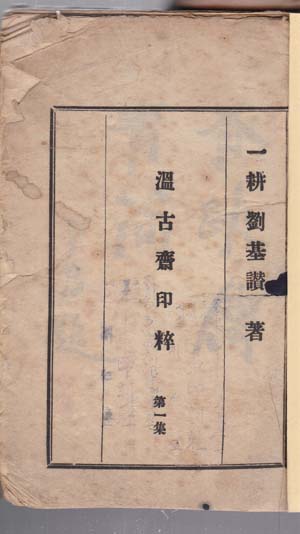 一耕劉基讚 著
溫古齋印粹 第一集